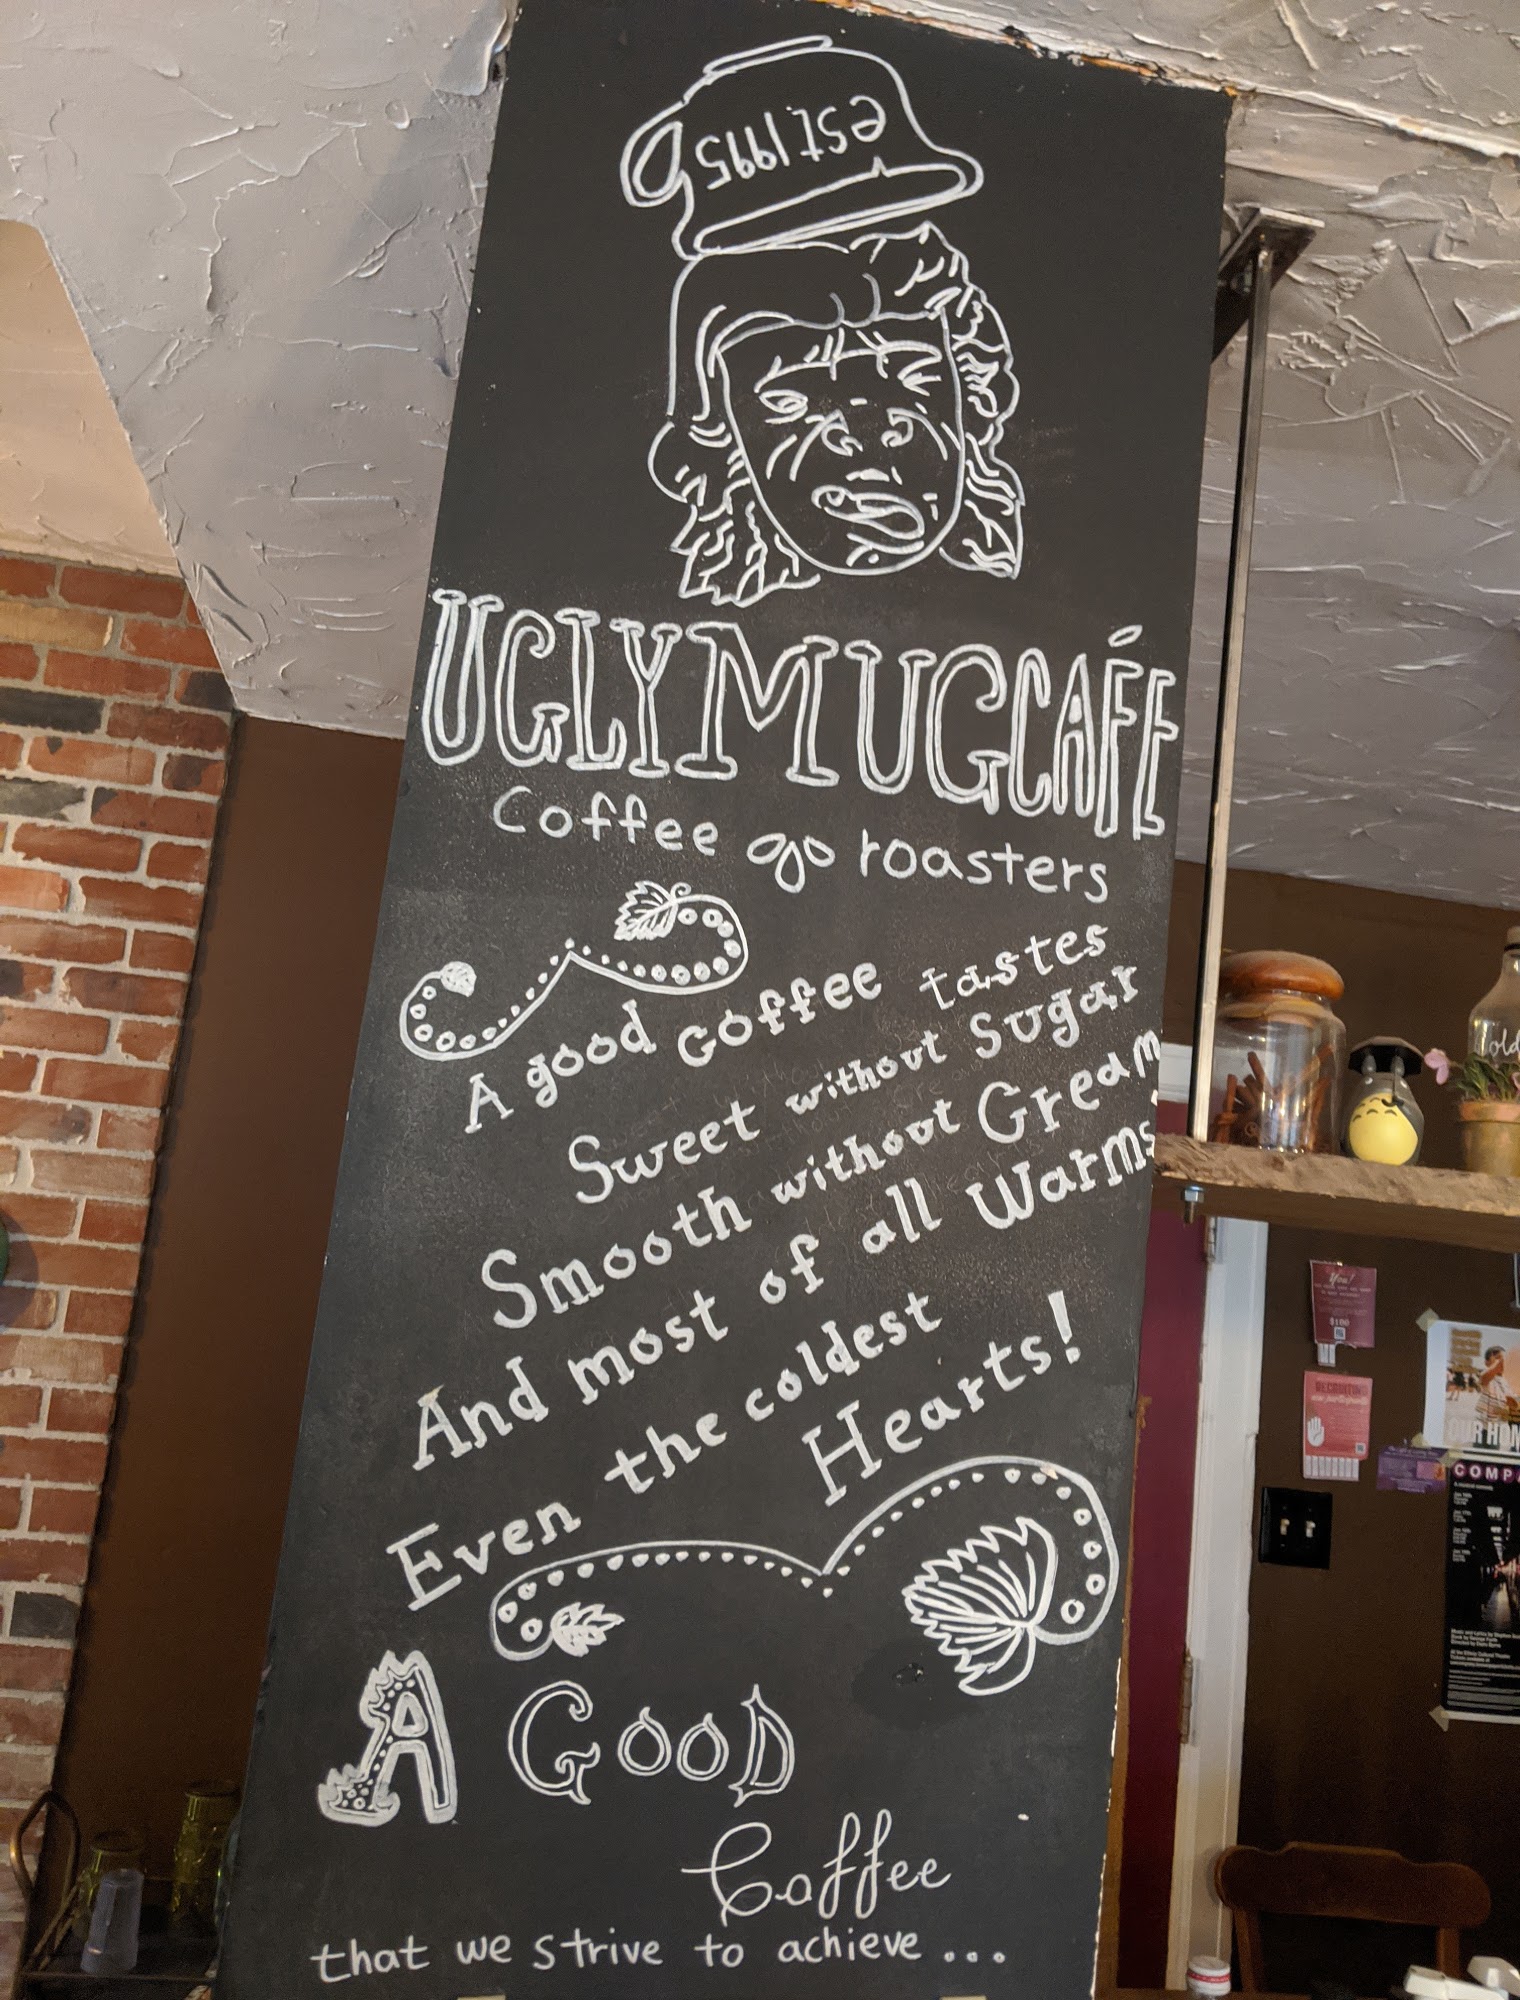 est 1995
UGLY MUG CAFÉ
Coffee roasters
A good coffee tastes
Sweet without Sugar
Smooth without Cream
And most of all Warms
Even the coldest
Hearts!
A GOOD
Coffee
that we strive to achieve...
You!
$100
RECRUITING
OUR HOM
COMP